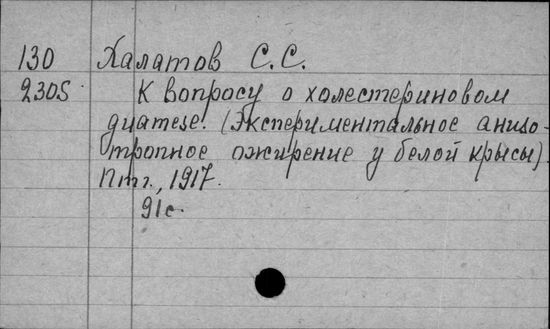 130 Халатов С.С.
2305 К вопросу о холестериновом
диатезе. (Экспериментальное анизо-
тропное ожирение у белой крысы).
Птг., 1917.
91с.